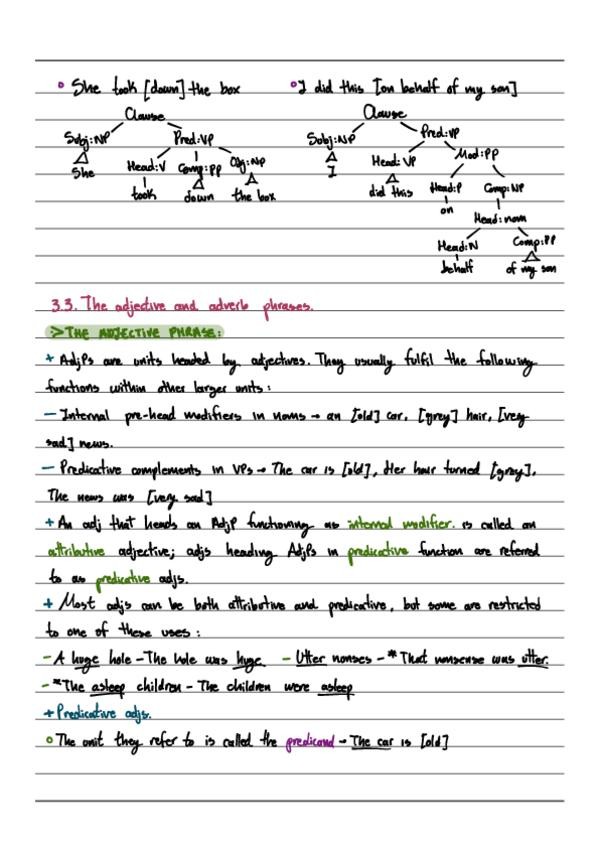 ○ She took [down] the box
○ I did this [on behalf of my son]
Clause
Subj:NP Pred:VP
She Head:V Comp:PP Obj:NP
took down the box
Clause
Subj:NP Pred:VP
I Head:VP Mod:PP
did this Head:P Comp:NP
on Head:nom
Head:N Comp:PP
behalf of my son
3.3. The adjective and adverb phrases.
> THE ADJECTIVE PHRASE:
+ AdjPs are units headed by adjectives. They usually fulfil the following
functions within other larger units:
– Internal pre-head modifiers in noms → an [old] car, [grey] hair, [very
sad] news.
– Predicative complements in VPs → The car is [old], Her hair turned [gray],
The news was [very sad]
+ An adj that heads an AdjP functioning as internal modifier. is called an
attributive adjective; adjs heading AdjPs in predicative function are referred
to as predicative adjs.
+ Most adjs can be both attributive and predicative, but some are restricted
to one of these uses:
– A huge hole – The hole was huge. – Utter nonses – * That nonsense was utter.
– *The asleep children – The children were asleep
+ Predicative adjs.
○ The unit they refer to is called the predicand → The car is [old]